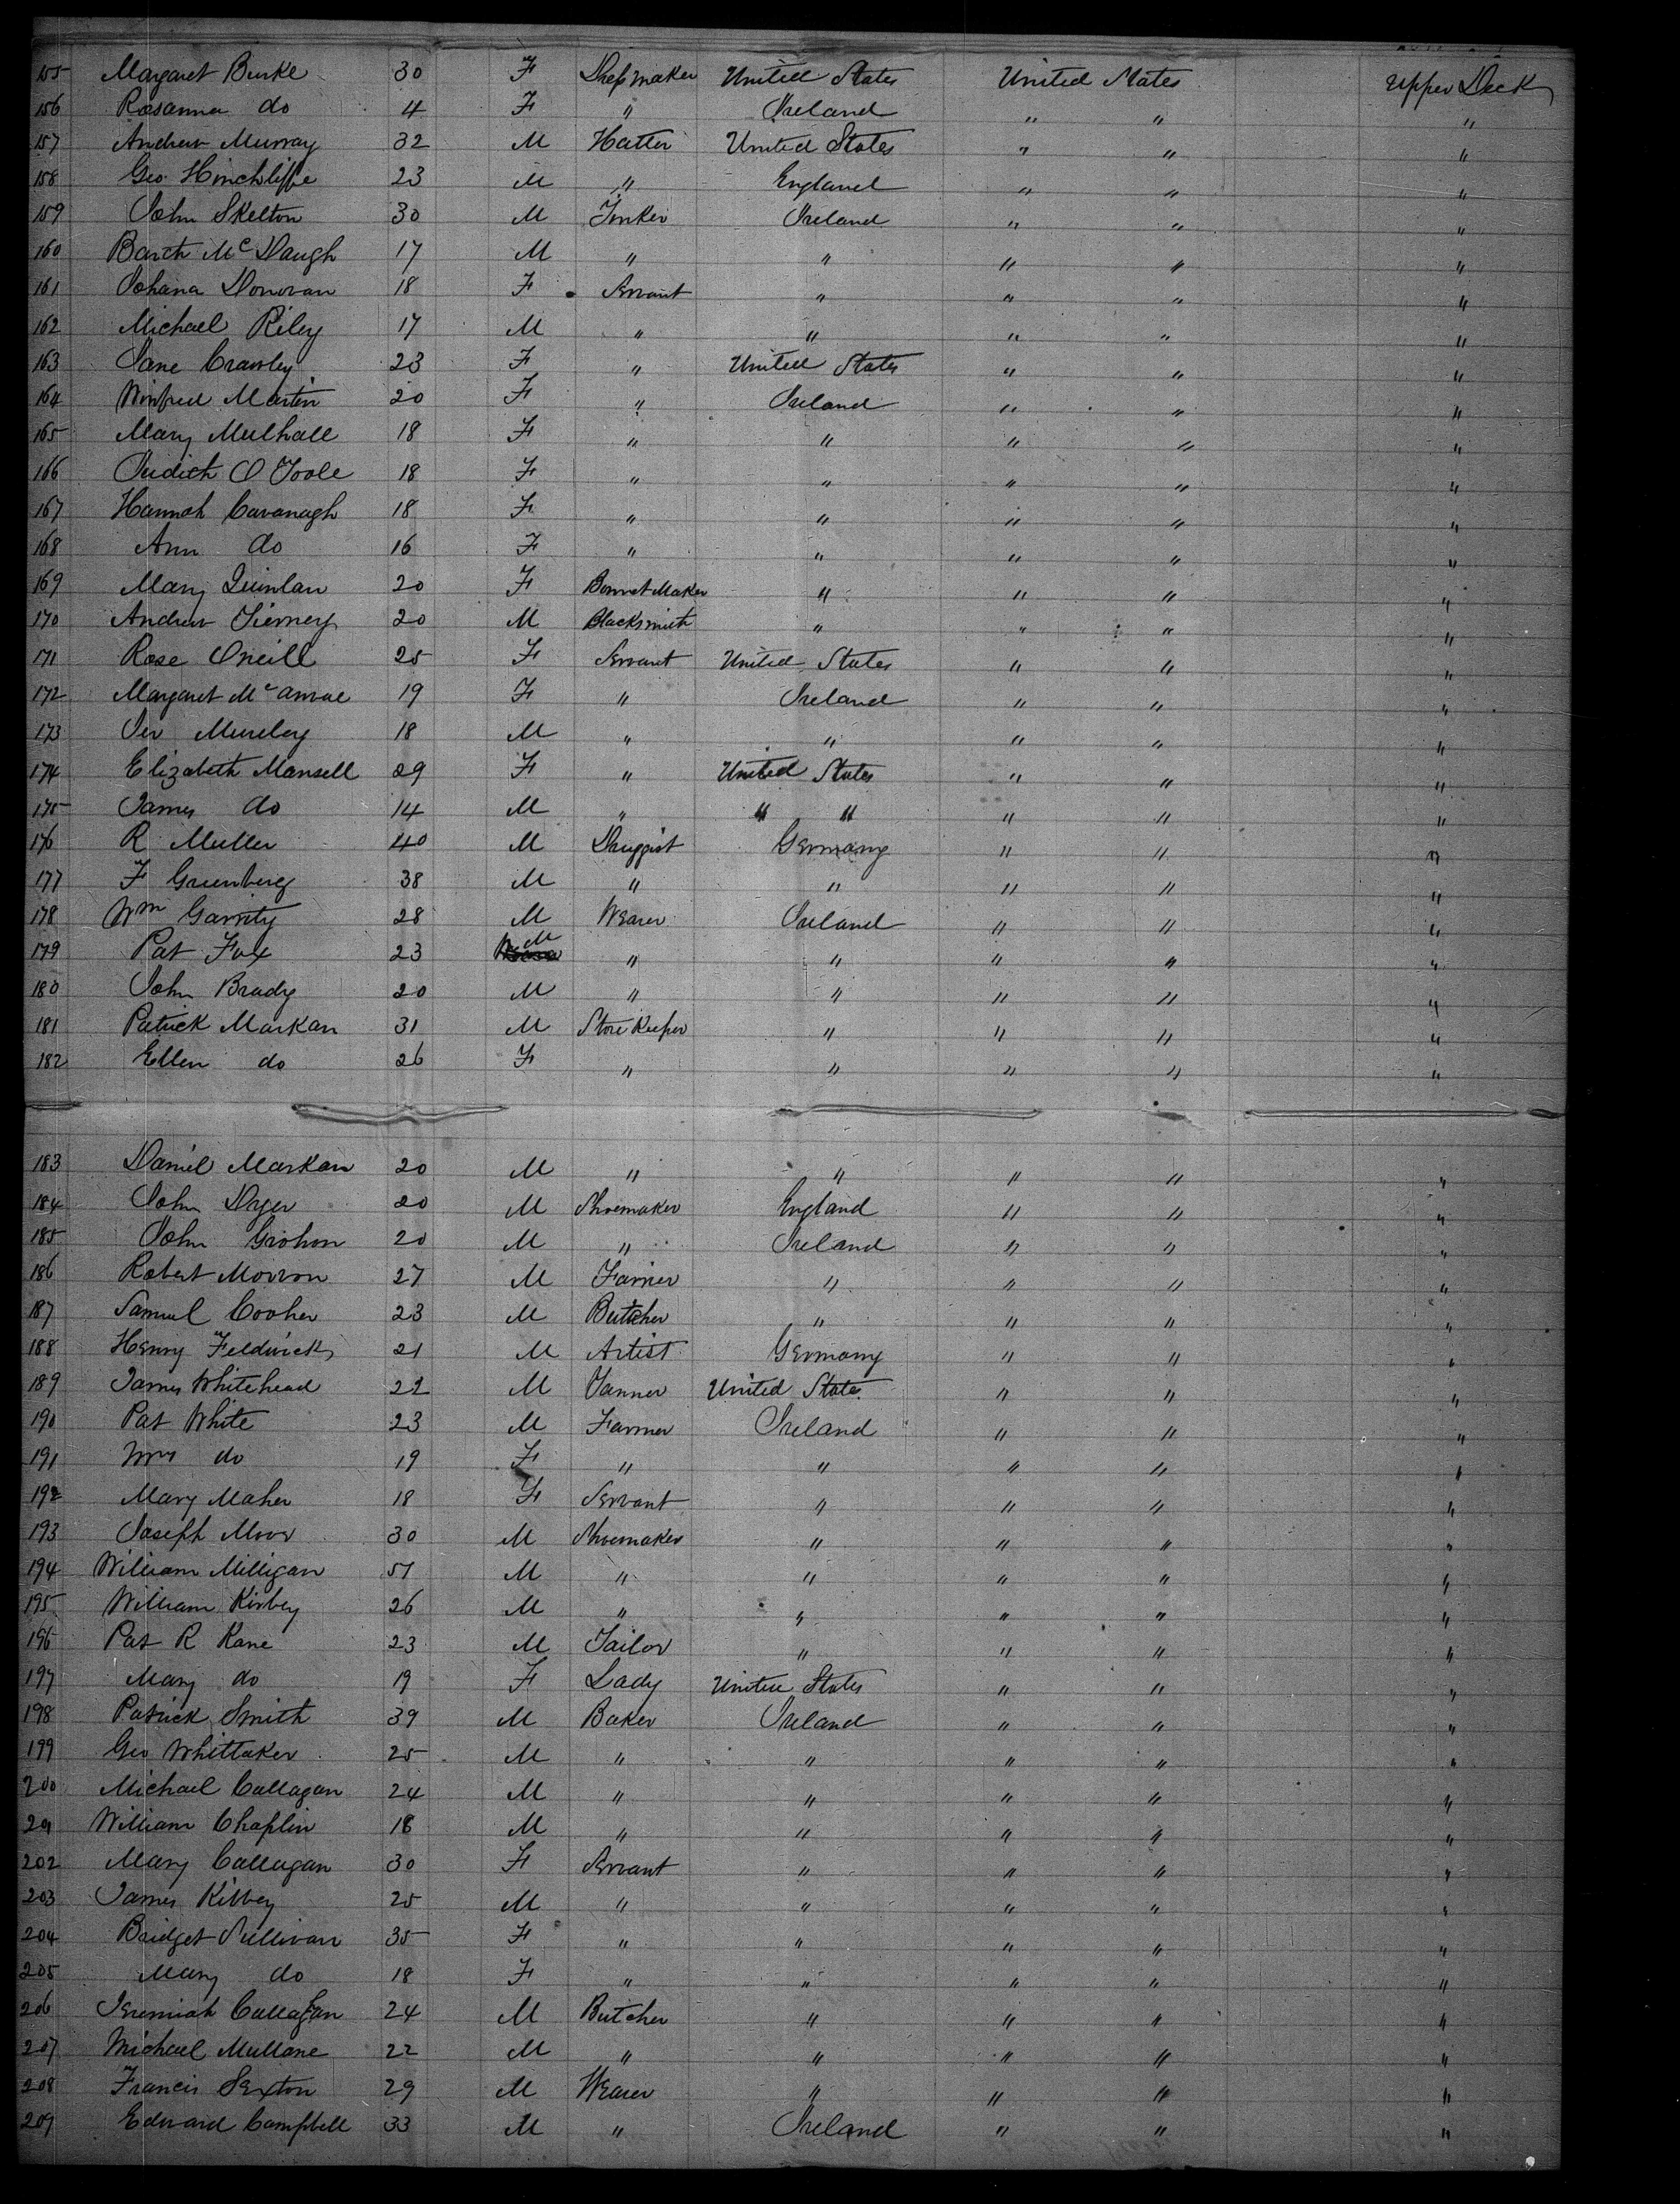 155 Margaret Burke 30 F Dressmaker United States United States Upper Deck
156 Rosanna do 4 F " Ireland " " "
157 Andrew Murray 32 M Hatter United States " " "
158 Geo. Hinchliffe 23 M " England " " "
159 John Skelton 30 M Tinker Ireland " " "
160 Barth Mc Daugh 17 M " " " " "
161 Johana Donovan 18 F Servant " " " "
162 Michael Riley 17 M " " " " "
163 Jane Crawley 23 F " United States " " "
164 Winfred Martin 20 F " Ireland " " "
165 Mary Mulhall 18 F " " " " "
166 Judith O Toole 18 F " " " " "
167 Hannah Cavanagh 18 F " " " " "
168 Ann do 16 F " " " " "
169 Mary Quinlan 20 F Bonnet Maker " " " "
170 Andrew Tierney 20 M Blacksmith " " " "
171 Rose Oneill 25 F Servant United States " " "
172 Margaret Mc 19 F " Ireland " " "
173 Jer 18 M " " " " "
174 Elizabeth Mansell 29 F " United States " " "
175 James do 14 M " " " " " "
176 R Muller 40 M Druggist Germany " " "
177 F Greenberg 38 M " " " " "
178 Wm Garrity 28 M Weaver Ireland " " "
179 Pat Fox 23 M " " " " "
180 John Brady 20 M " " " " "
181 Patrick Markan 31 M Store Keeper " " " "
182 Ellen do 26 F " " " " "
183 Daniel Markan 20 M " " " " "
184 John Dyer 20 M Shoemaker England " " "
185 John Grohon 20 M " Ireland " " "
186 Robert Morron 27 M Farrier " " " "
187 Samuel Cooher 23 M Butcher " " " "
188 Henry Feldwick 21 M Artist Germany " " "
189 James Whitehead 22 M Tanner United State " " "
190 Pat White 23 M Farmer Ireland " " "
191 Mrs do 19 F " " " " "
192 Mary Maher 18 F Servant " " " "
193 Joseph Moor 30 M Shoemaker " " " "
194 William Milligan 51 M " " " " "
195 William Kirbey 26 M " " " " "
196 Pat R Kane 23 M Tailor " " " "
197 Mary do 19 F Lady United States " " "
198 Patrick Smith 39 M Baker Ireland " " "
199 Geo Whittaker 25 M " " " " "
200 Michael Callagan 24 M " " " " "
201 William Chaplin 18 M " " " " "
202 Mary Callagan 30 F Servant " " " "
203 James Kibbey 25 M " " " " "
204 Bridget Sullivan 35 F " " " " "
205 Mary do 18 F " " " " "
206 Jeremiah Callagan 24 M Butcher " " " "
207 Michael Mullane 22 M " " " " "
208 Francis Sexton 29 M Weaver " " " "
209 Edward Campbell 33 M " Ireland " " "